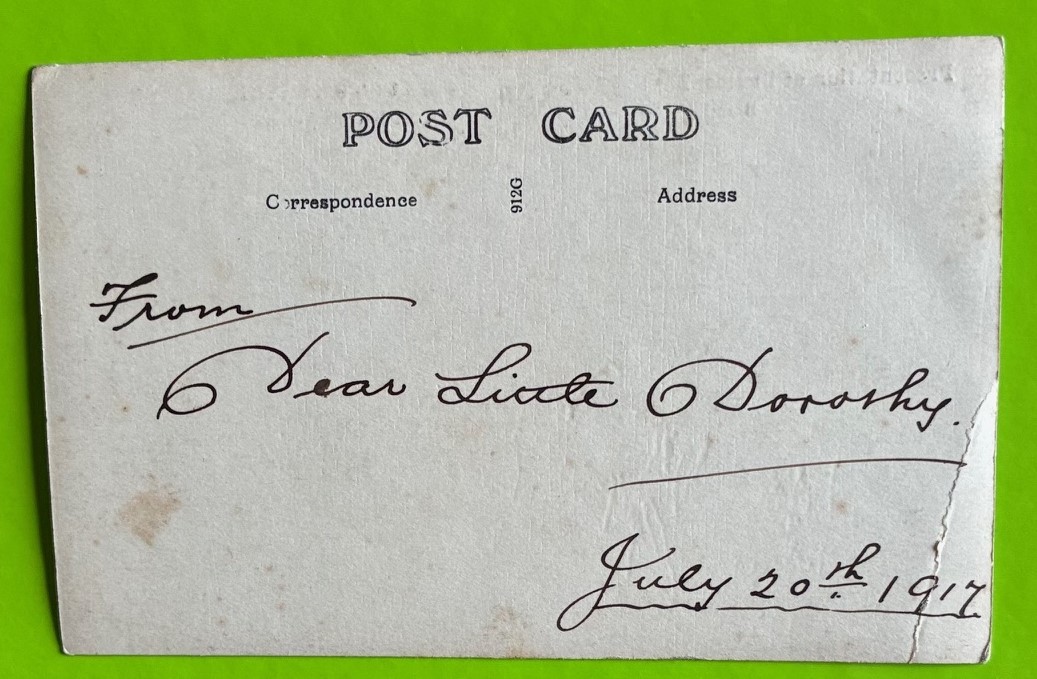 POST CARD
Correspondence
912G
Address
From
Dear Little Dorothy.
July 20th 1917